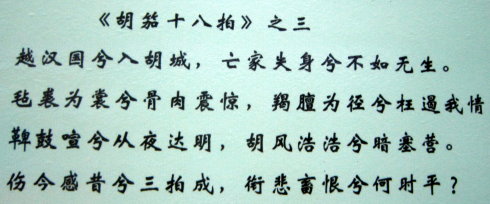 《胡笳十八拍》之三
越汉国兮入胡城，亡家失身兮不如无生。
毡裘为裳兮骨肉震惊，羯膻为径兮枉遏我情
鞞鼓喧兮从夜达明，胡风浩浩兮暗塞营。
伤今感昔兮三拍成，衔悲畜恨兮何时平？